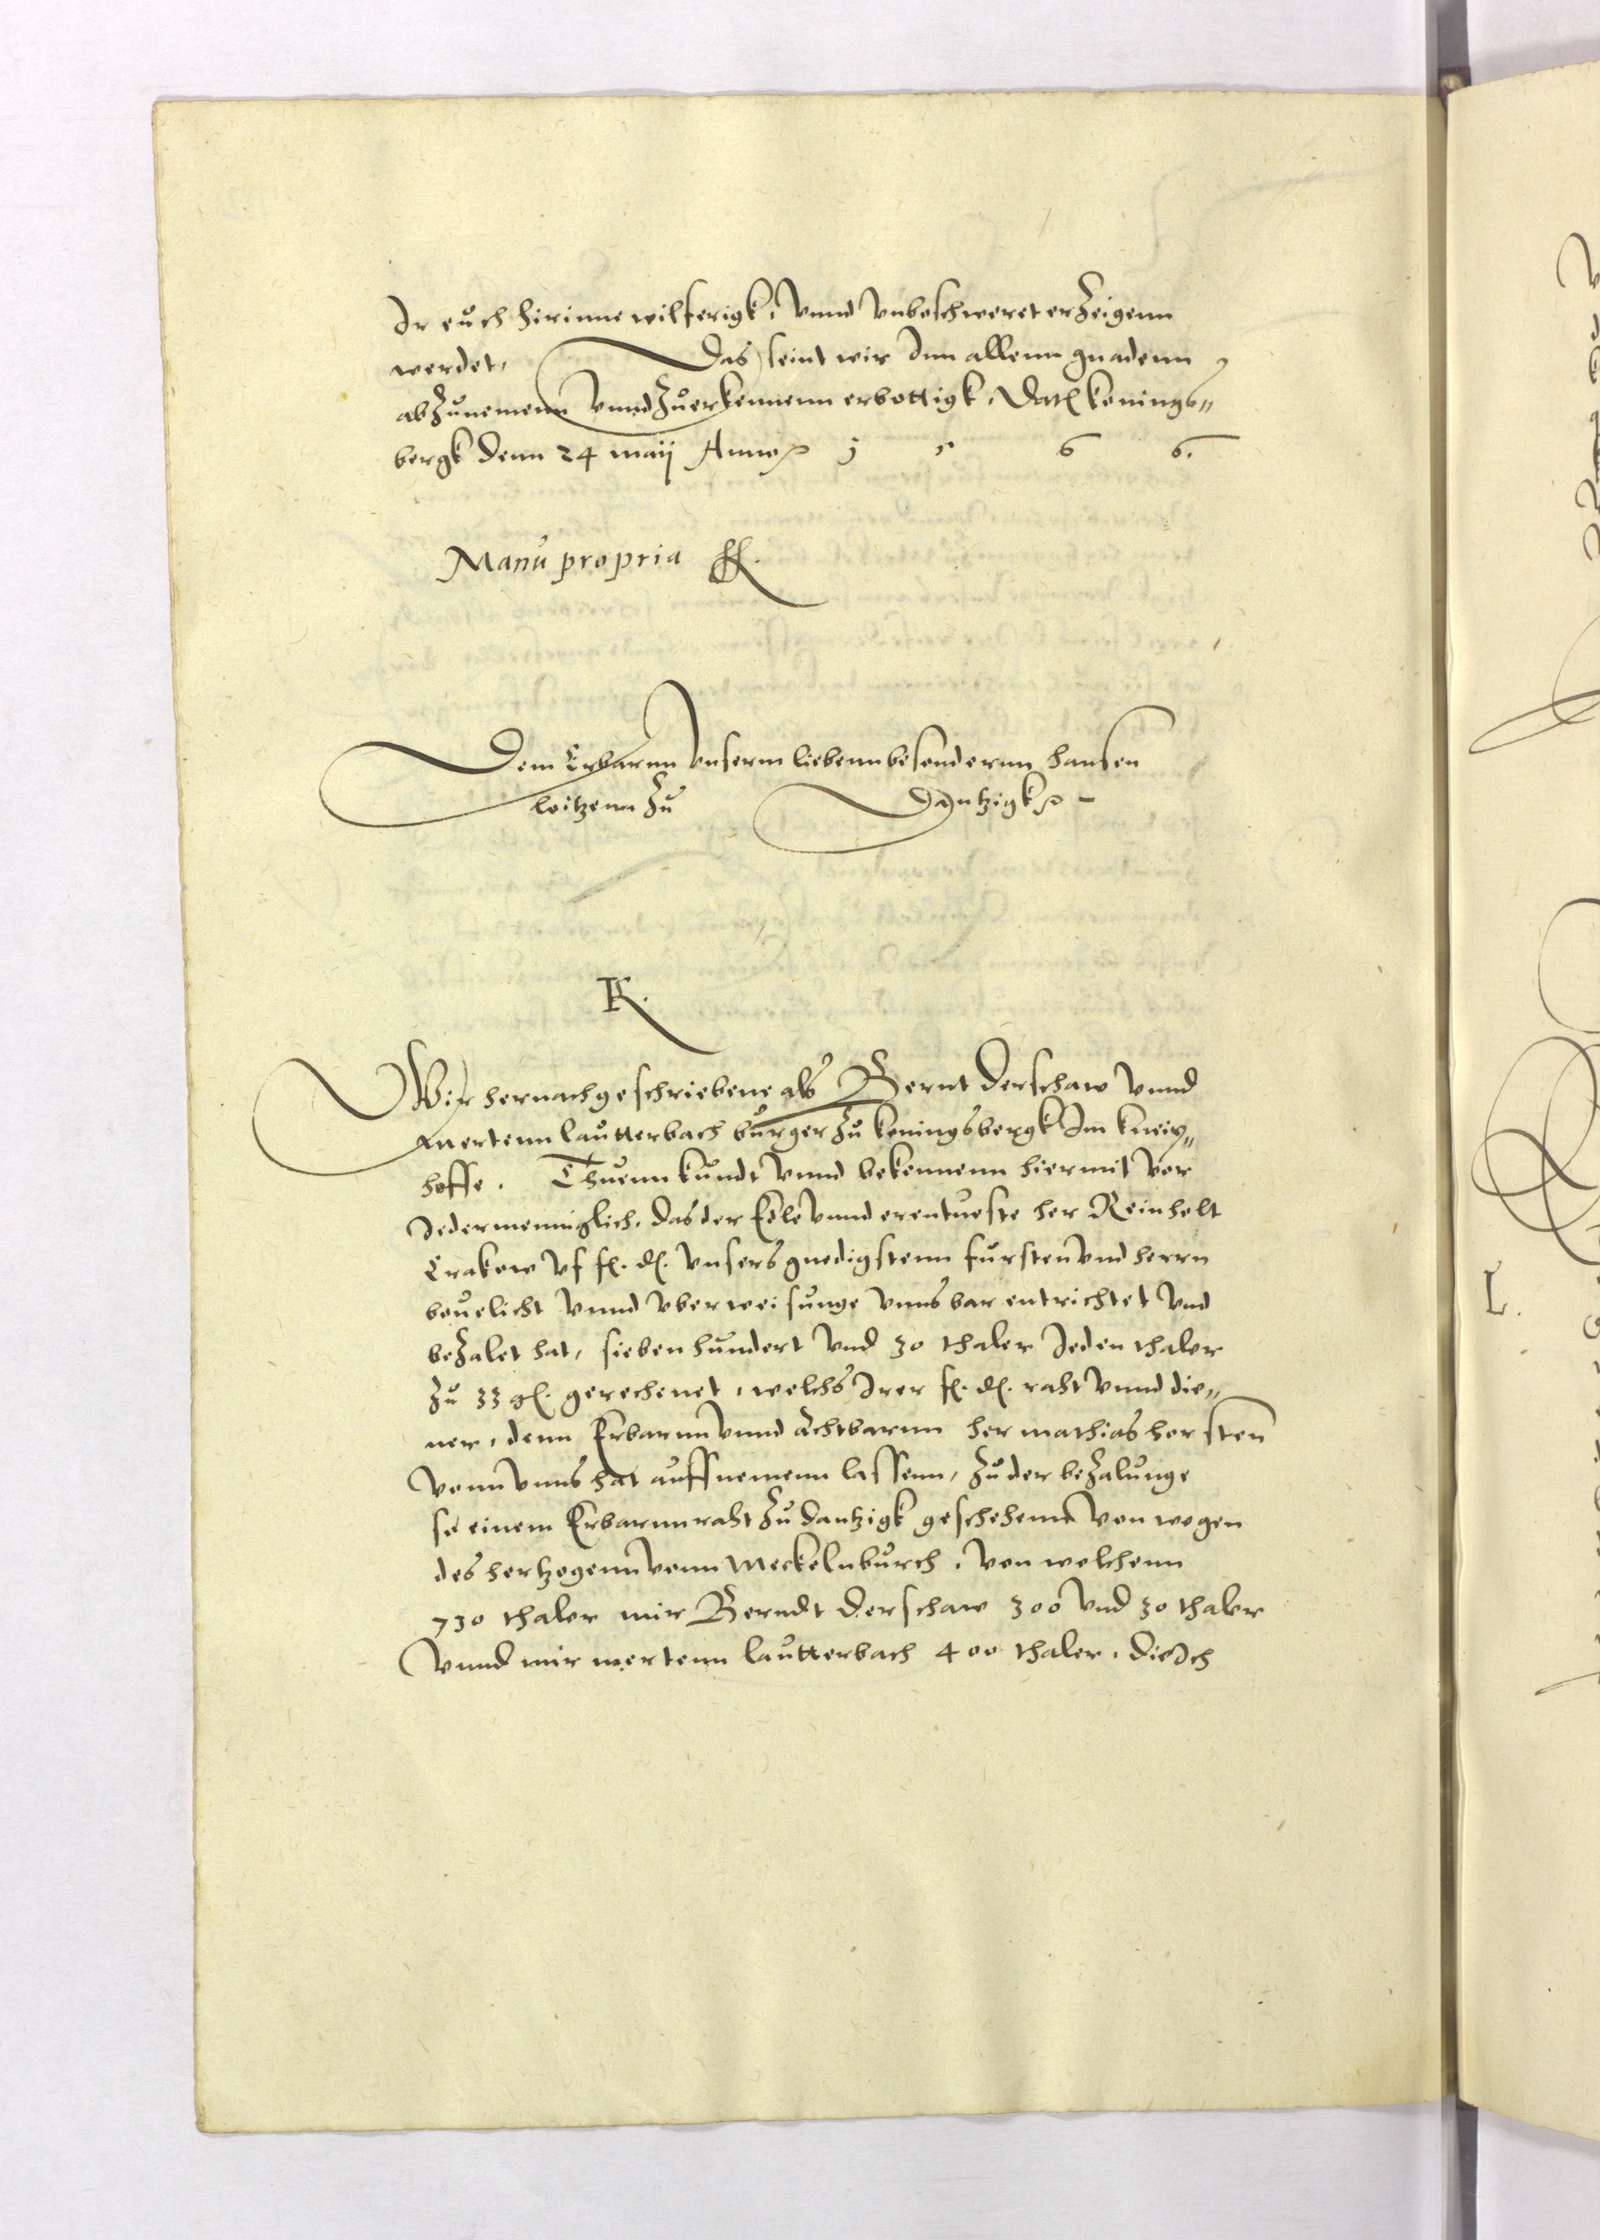 Ir euch hirinne wilferigk, vnnd vnbeschweret erzeigenn
werdet, Das seint wir Inn allenn gnadenn
abzunemenn vnnd zuerkennenn erbottigk, Dat konings„
bergk denn 24 maij Anno 1 5 6 6.
Manu propria
Dem Erbarnn vnserm liebenn besondernn hansen
loitzenn zu Dantzigk –
K.
Wir hernachgeschriebene als Bernt Derschaw vnnd
Mertenn lautterbach burger zu koningsbergk Im kneip„
hoffe. Thuenn kundt vnnd bekennenn hiermit vor
Jedermenniglich, das der Edle vnnd erentueste her Reinholt
Crakow vf f. d. vnsers gnedigstenn fursten vnd herrn
beuelicht vnnd vberweisunge vnns bar entrichtet vnd
bezalet hat, sieben hundert vnd 30 thaler Jeden thaler
zu 33 g. gerechenet, welchs Irer f. d. raht vnnd die„
ner, denn Erbarnn vnnd Achtbarnn her mathias horsten
vonn vnns hat auffnemenn lassenn, zu der bezalunge
so einem Erbarnn raht zu dantzigk geschehenn von wegen
des hertzogenn vonn Meckelnburch, von welchenn
730 thaler mir Berndt Derschaw 300 vnd 30 thaler
vnnd mir mertenn lautterbach 400 thaler, die Ich
L.